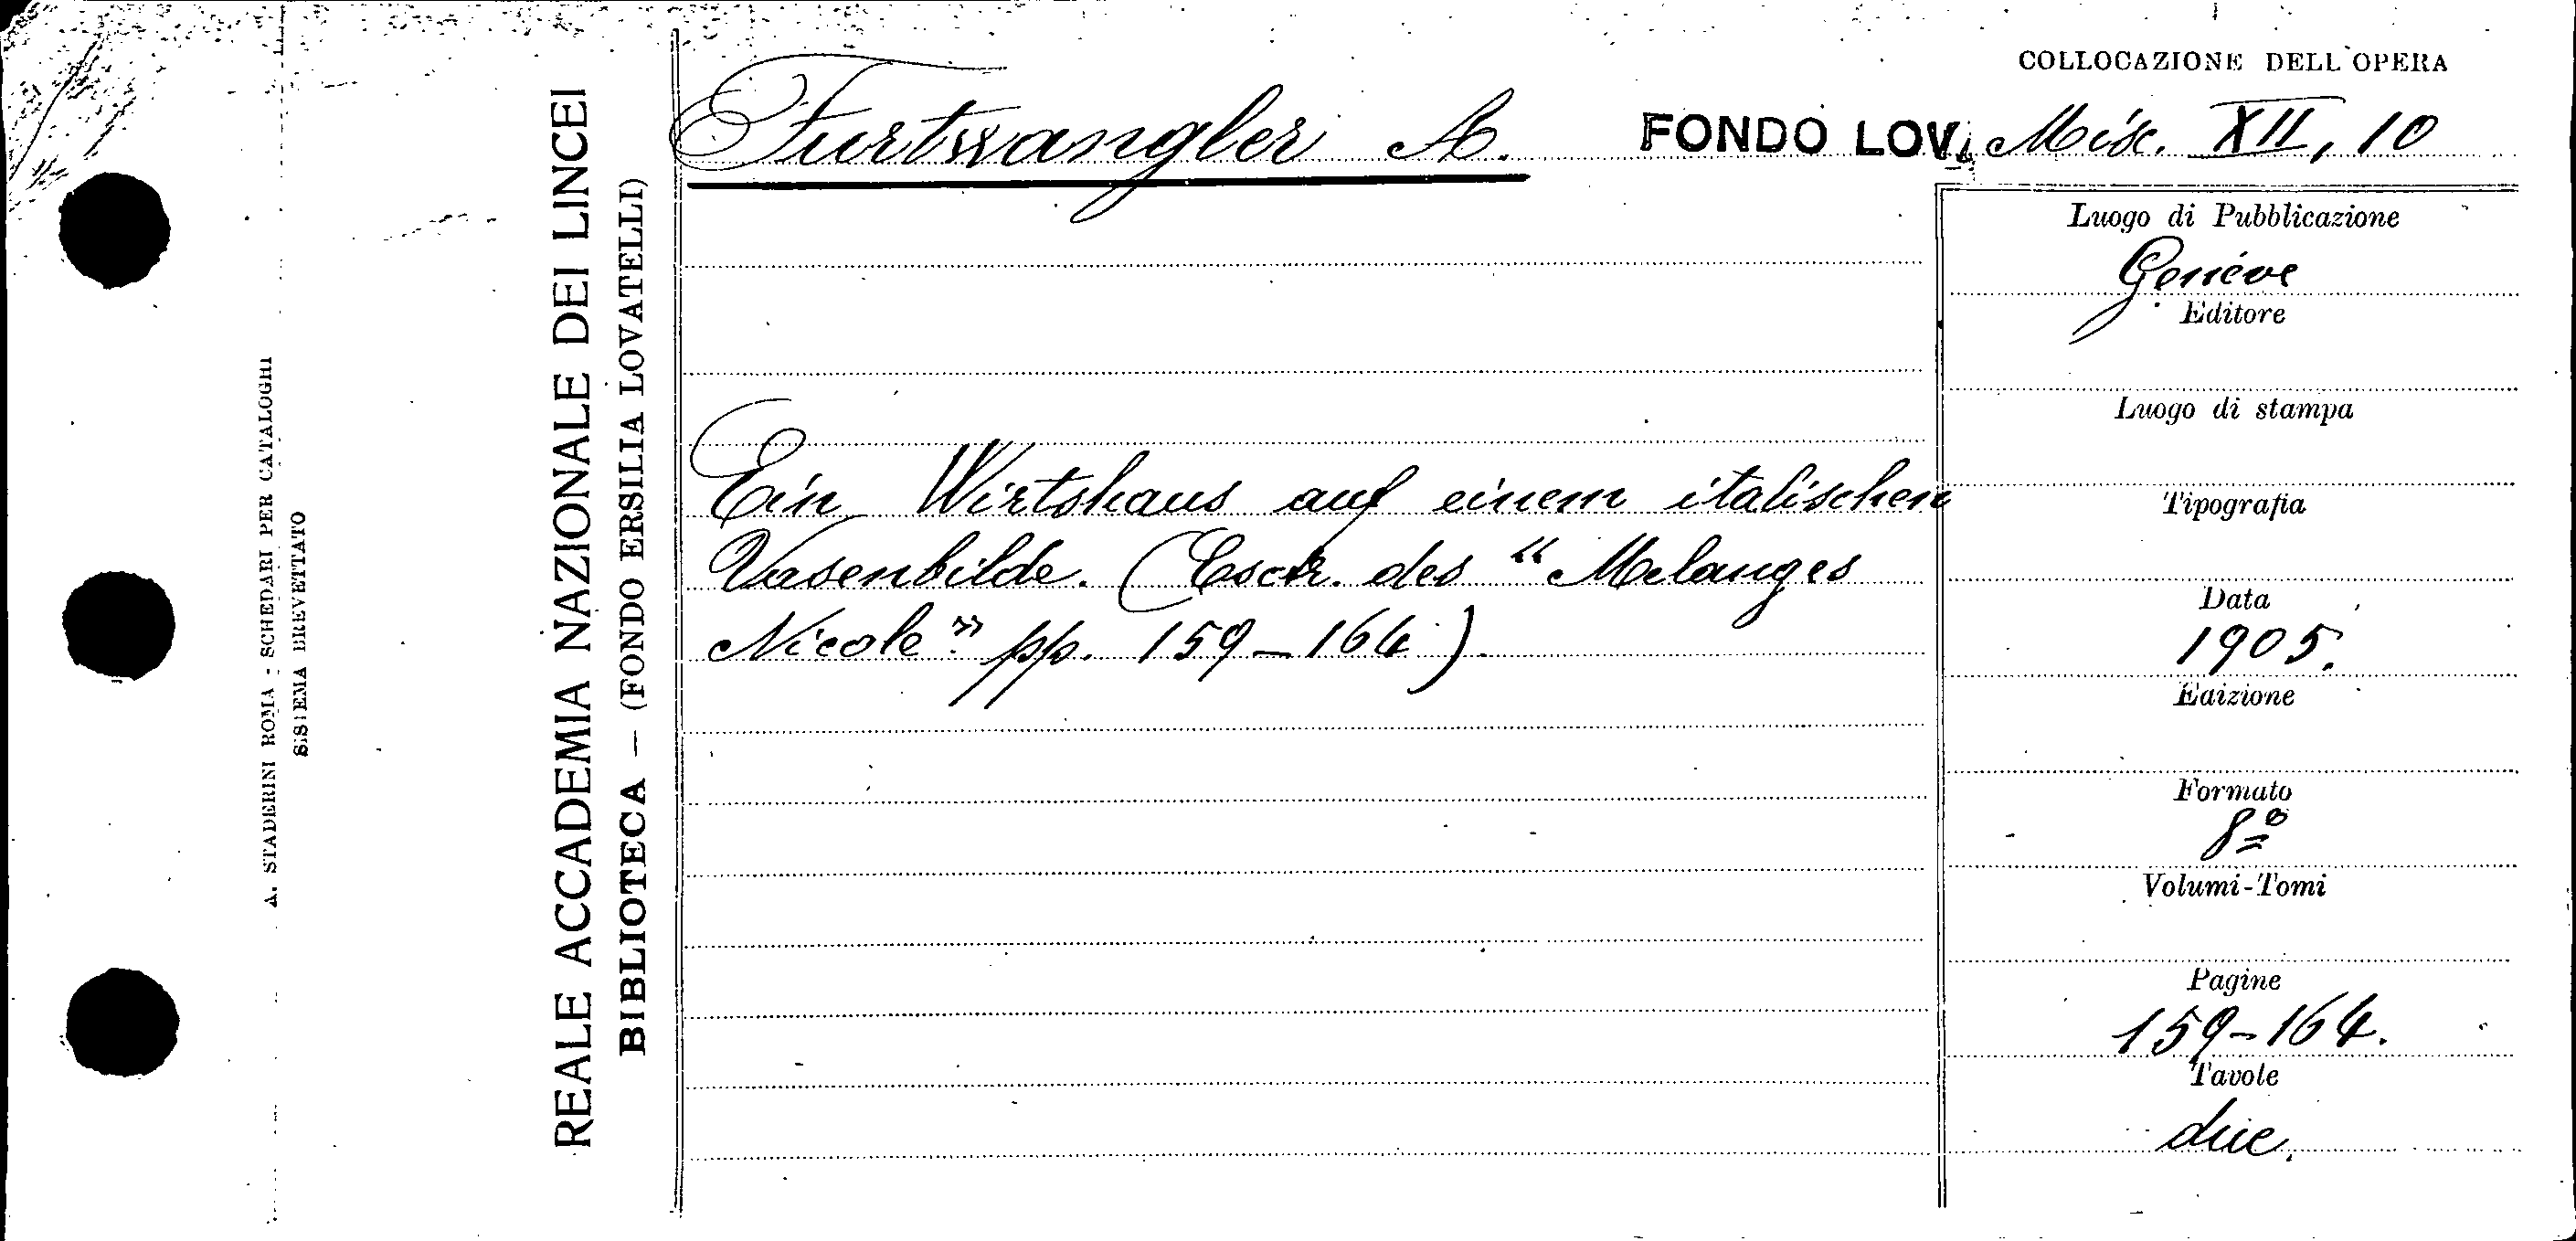 COLLOCAZIONE DELL'OPERA
Furtwangler A. FONDO LOV. Misc. XII, 10
Ein Wirtshaus auf einem italischen
Vasenbilde. (Escr. des "Melanges
Nicole" pp. 159-164).
Luogo di Pubblicazione
Genéve
Editore
Luogo di stampa
Tipografia
Data
1905.
Edizione
Formato
8º
Volumi-Tomi
Pagine
159-164.
Tavole
due.
REALE ACCADEMIA NAZIONALE DEI LINCEI
BIBLIOTECA — (FONDO ERSILIA LOVATELLI)
A. STADERINI ROMA - SCHEDARI PER CATALOGHI
SISTEMA BREVETTATO